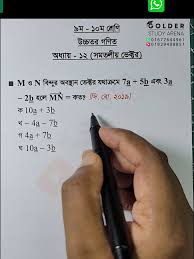 ৯ম - ১০ম শ্রেণি
উচ্চতর গণিত
অধ্যায় - ১২ (সমতলীয় ভেক্টর)
GOLDER
STUDY ARENA
M ও N বিন্দুর অবস্থান ভেক্টর যথাক্রমে 7a + 5b এবং 3a
- 2b হলে MN = কত? (দি. বো. ২০১৯)
ক 10a + 3b
খ - 4a - 7b
গ 4a + 7b
ঘ 10a - 3b